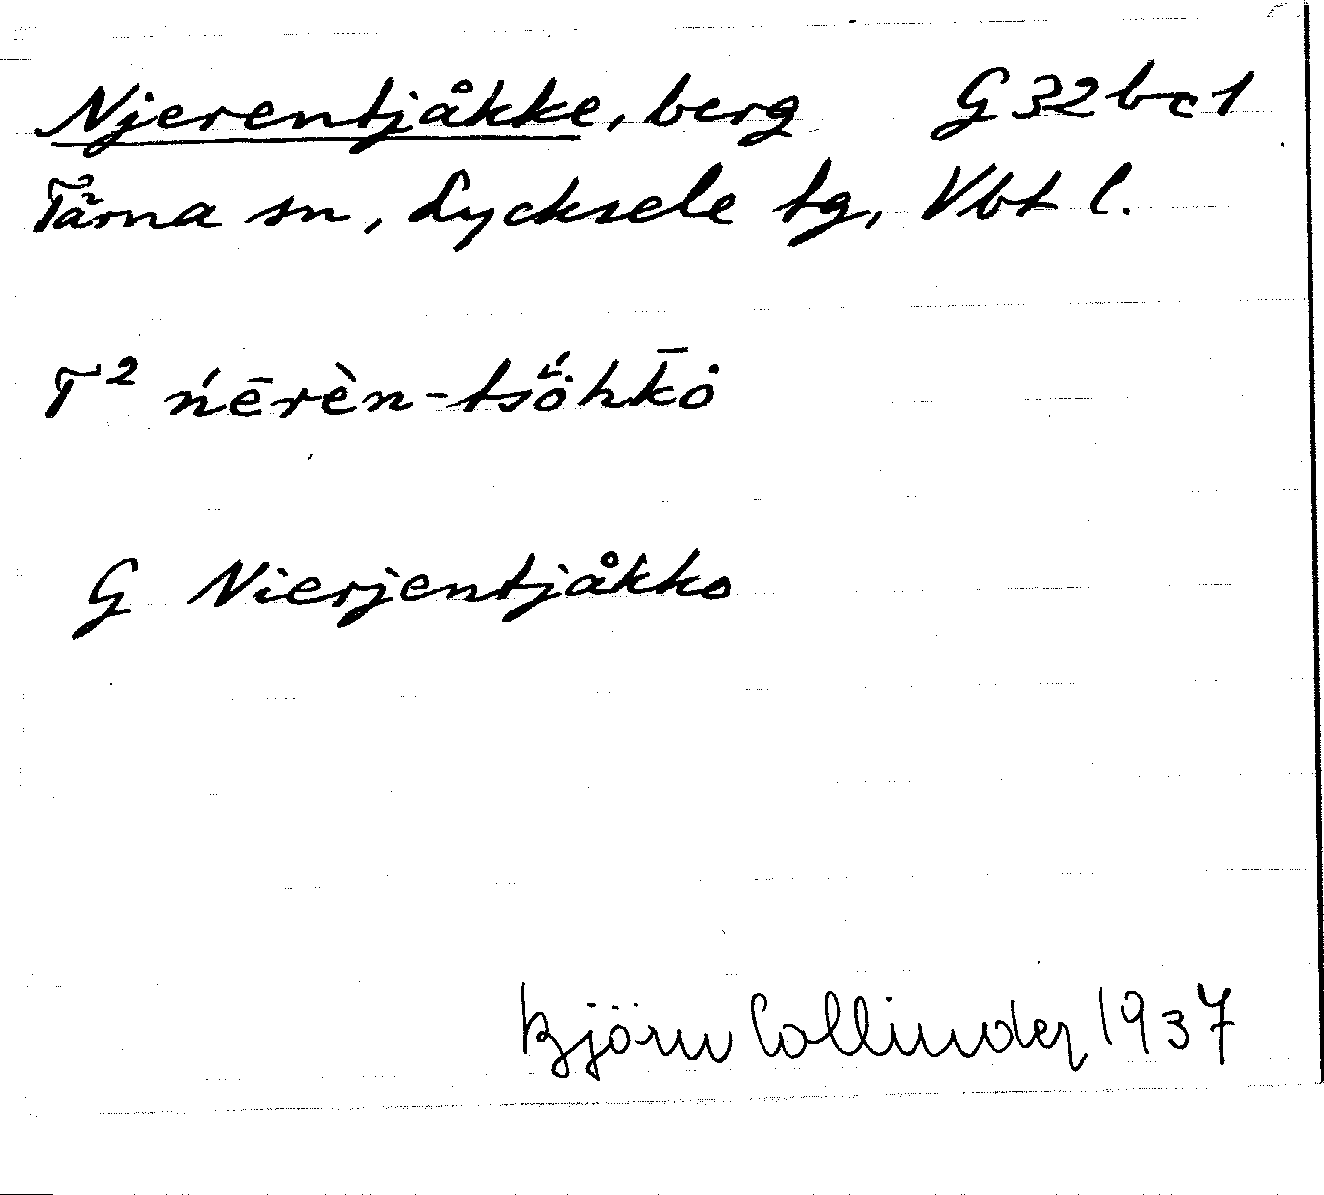 Njerentjåkke, berg G 32 bc 1
Tärna sn, Lycksele tg, Vbt l.
T² ńērèn-tsö́hk̄ȯ
G Nierjentjåkko
Björn Collinder 1937